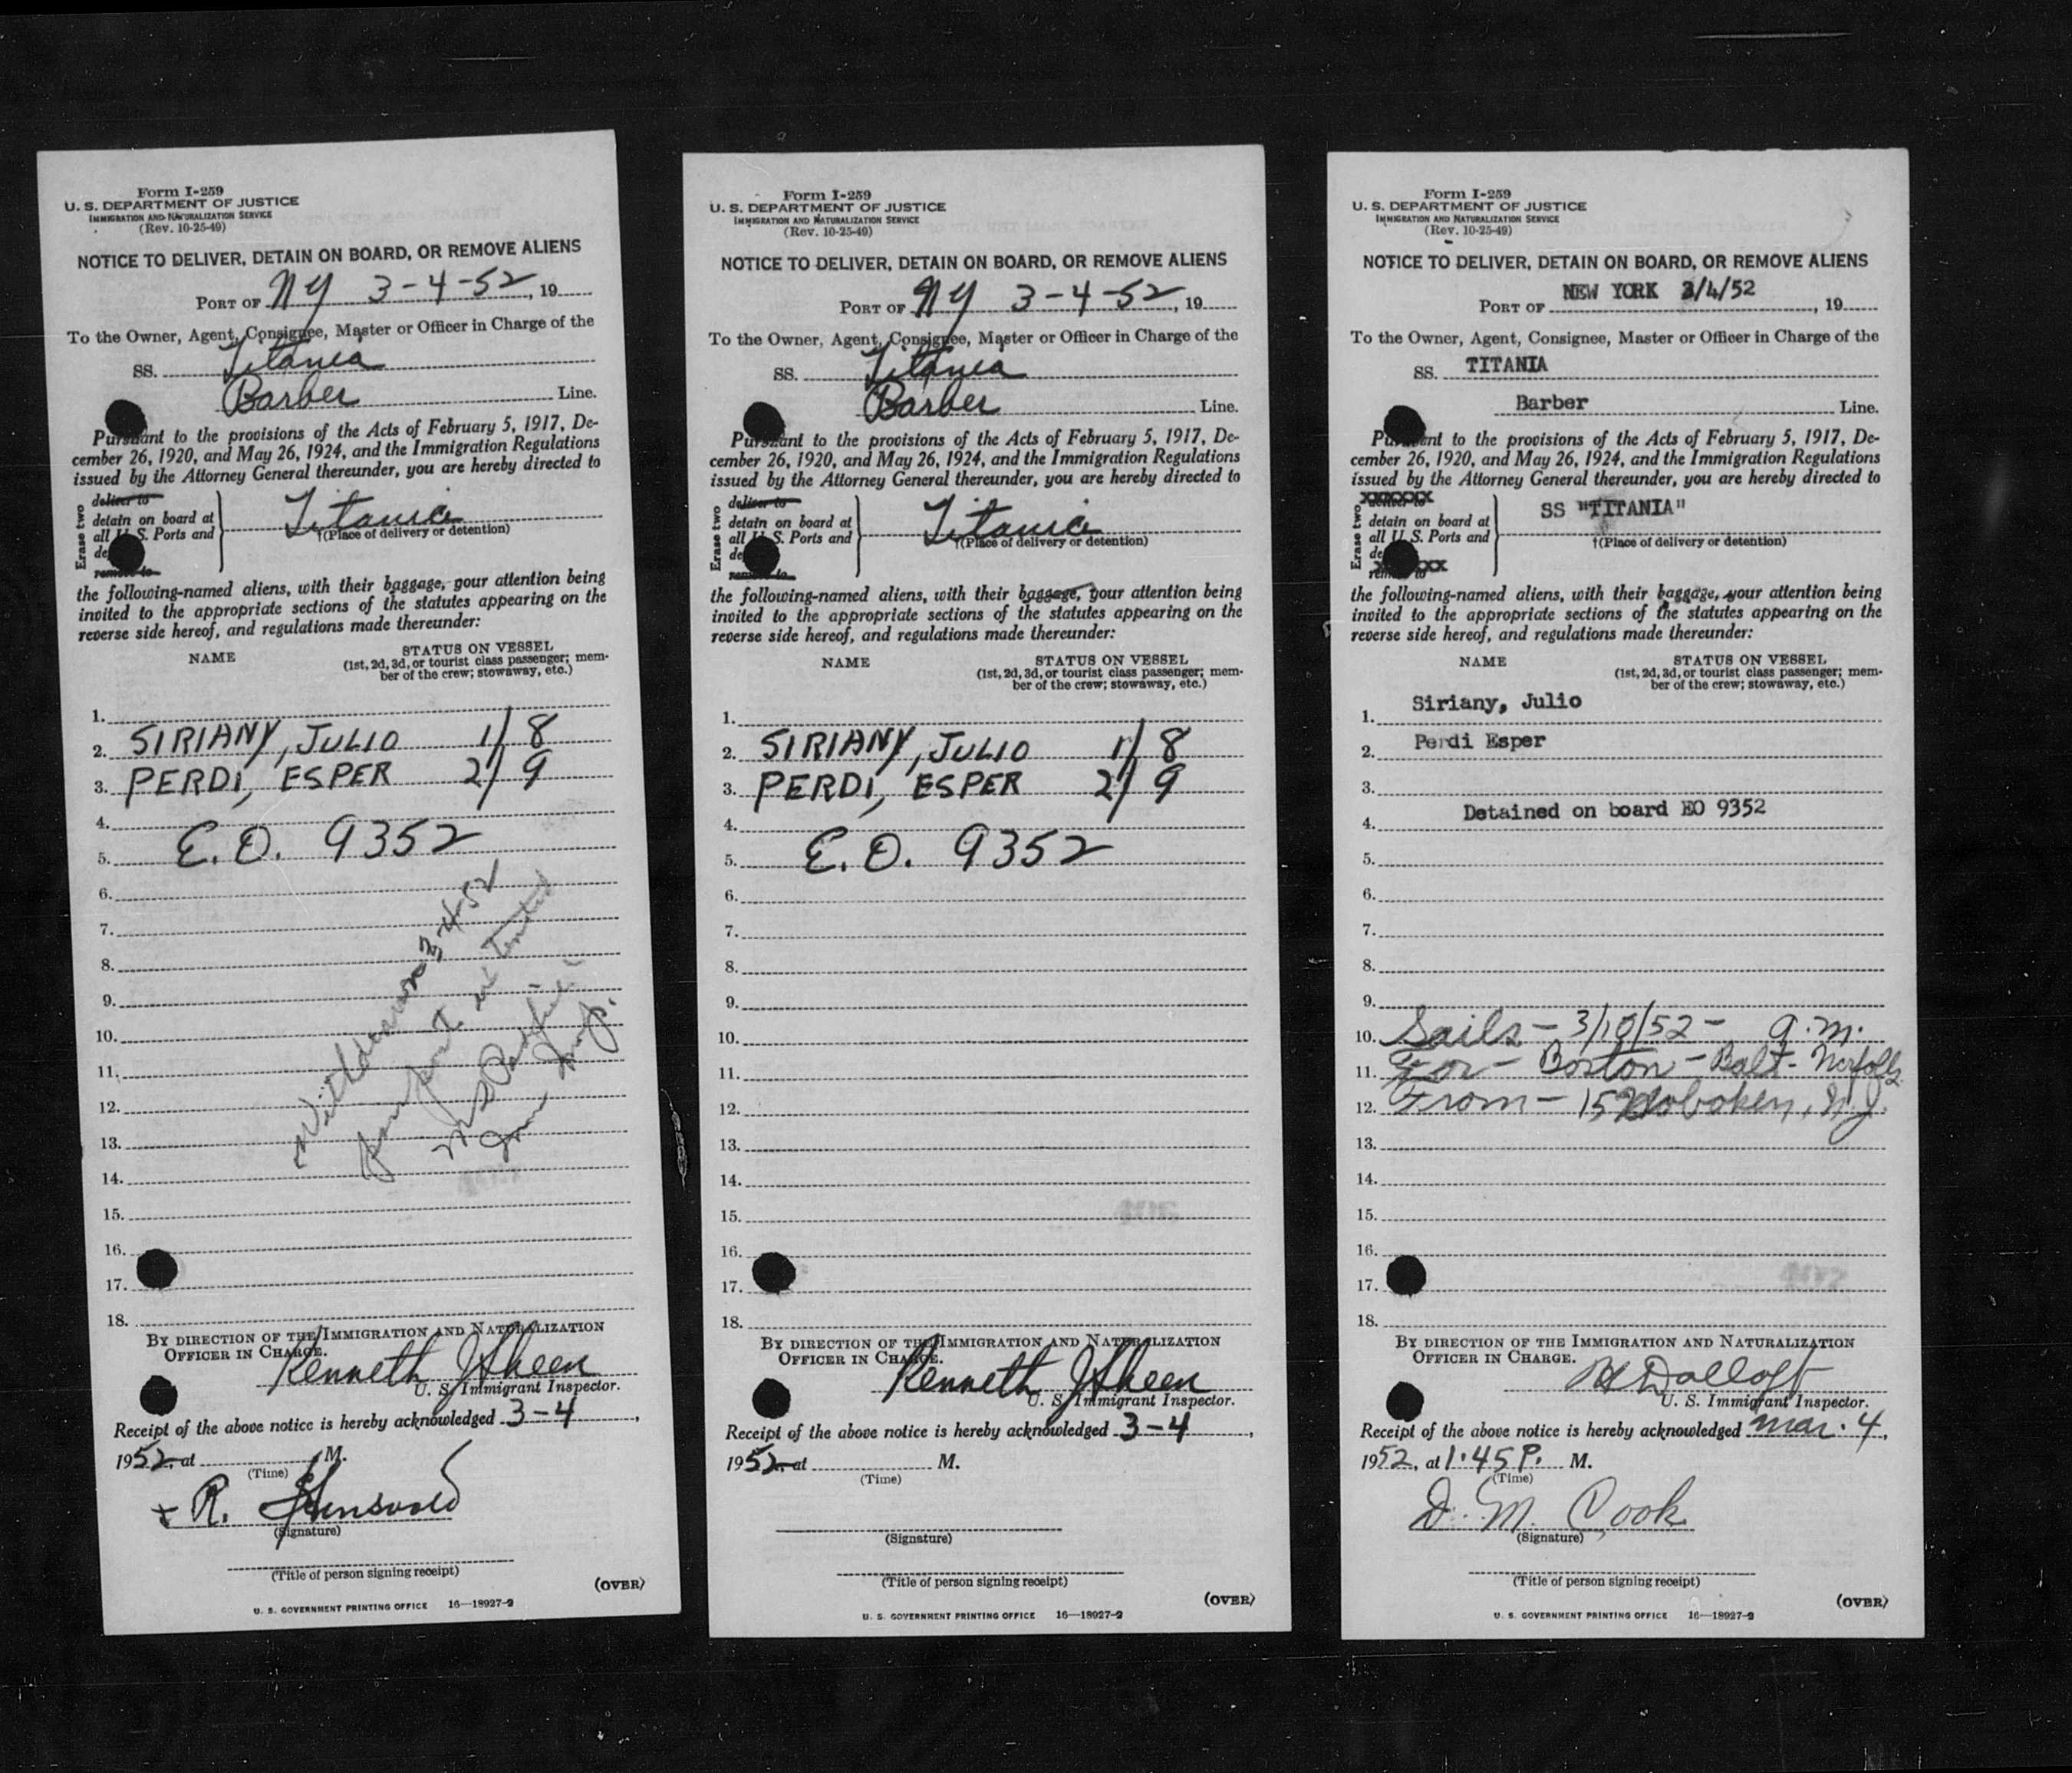 Form I-259
U. S. DEPARTMENT OF JUSTICE
IMMIGRATION AND NATURALIZATION SERVICE
(Rev. 10-25-49)
NOTICE TO DELIVER, DETAIN ON BOARD, OR REMOVE ALIENS
PORT OF NY 3-4-52, 19
To the Owner, Agent, Consignee, Master or Officer in Charge of the
SS. Titania
Barber Line.
Pursuant to the provisions of the Acts of February 5, 1917, De-
cember 26, 1920, and May 26, 1924, and the Immigration Regulations
issued by the Attorney General thereunder, you are hereby directed to
Erase two
deliver to
detain on board at
all U. S. Ports and
de
remove to
Titania
†(Place of delivery or detention)
the following-named aliens, with their baggage, your attention being
invited to the appropriate sections of the statutes appearing on the
reverse side hereof, and regulations made thereunder:
NAME STATUS ON VESSEL
(1st, 2d, 3d, or tourist class passenger; mem-
ber of the crew; stowaway, etc.)
1.
2. SIRIANY, JULIO 1/8
3. PERDI, ESPER 2/9
4.
5. E.O. 9352
6.
7.
8.
9.
10.
11.
12.
13.
14.
15.
16.
17.
18.
Withdrawn 3-4-52
BY DIRECTION OF THE IMMIGRATION AND NATURALIZATION
OFFICER IN CHARGE.
Kenneth J Sheen
U. S. Immigrant Inspector.
Receipt of the above notice is hereby acknowledged 3-4,
1952, at M.
(Time)
R.
(Signature)
(Title of person signing receipt)
(OVER)
U. S. GOVERNMENT PRINTING OFFICE 16—18927-2
Form I-259
U. S. DEPARTMENT OF JUSTICE
IMMIGRATION AND NATURALIZATION SERVICE
(Rev. 10-25-49)
NOTICE TO DELIVER, DETAIN ON BOARD, OR REMOVE ALIENS
PORT OF NY 3-4-52, 19
To the Owner, Agent, Consignee, Master or Officer in Charge of the
SS. Titania
Barber Line.
Pursuant to the provisions of the Acts of February 5, 1917, De-
cember 26, 1920, and May 26, 1924, and the Immigration Regulations
issued by the Attorney General thereunder, you are hereby directed to
Erase two
deliver to
detain on board at
all U. S. Ports and
de
remove to
Titania
†(Place of delivery or detention)
the following-named aliens, with their baggage, your attention being
invited to the appropriate sections of the statutes appearing on the
reverse side hereof, and regulations made thereunder:
NAME STATUS ON VESSEL
(1st, 2d, 3d, or tourist class passenger; mem-
ber of the crew; stowaway, etc.)
1.
2. SIRIANY, JULIO 1/8
3. PERDI, ESPER 2/9
4.
5. E.O. 9352
6.
7.
8.
9.
10.
11.
12.
13.
14.
15.
16.
17.
18.
BY DIRECTION OF THE IMMIGRATION AND NATURALIZATION
OFFICER IN CHARGE.
Kenneth J Sheen
U. S. Immigrant Inspector.
Receipt of the above notice is hereby acknowledged 3-4,
1952, at M.
(Time)
(Signature)
(Title of person signing receipt)
(OVER)
U. S. GOVERNMENT PRINTING OFFICE 16—18927-2
Form I-259
U. S. DEPARTMENT OF JUSTICE
IMMIGRATION AND NATURALIZATION SERVICE
(Rev. 10-25-49)
NOTICE TO DELIVER, DETAIN ON BOARD, OR REMOVE ALIENS
PORT OF NEW YORK 3/4/52, 19
To the Owner, Agent, Consignee, Master or Officer in Charge of the
SS. TITANIA
Barber Line.
Pursuant to the provisions of the Acts of February 5, 1917, De-
cember 26, 1920, and May 26, 1924, and the Immigration Regulations
issued by the Attorney General thereunder, you are hereby directed to
Erase two
detain on board at
all U. S. Ports and
de
SS "TITANIA"
†(Place of delivery or detention)
the following-named aliens, with their baggage, your attention being
invited to the appropriate sections of the statutes appearing on the
reverse side hereof, and regulations made thereunder:
NAME STATUS ON VESSEL
(1st, 2d, 3d, or tourist class passenger; mem-
ber of the crew; stowaway, etc.)
1. Siriany, Julio
2. Perdi Esper
3.
4. Detained on board EO 9352
5.
6.
7.
8.
9.
10. Sails - 3/10/52 - a.m.
11. For - Boston - Balt - Norfolk
12. From - 15 Hoboken, N.J.
13.
14.
15.
16.
17.
18.
BY DIRECTION OF THE IMMIGRATION AND NATURALIZATION
OFFICER IN CHARGE.
U. S. Immigrant Inspector.
Receipt of the above notice is hereby acknowledged Mar. 4,
1952, at 1:45 P. M.
(Time)
D. M. Cook
(Signature)
(Title of person signing receipt)
(OVER)
U. S. GOVERNMENT PRINTING OFFICE 16—18927-2